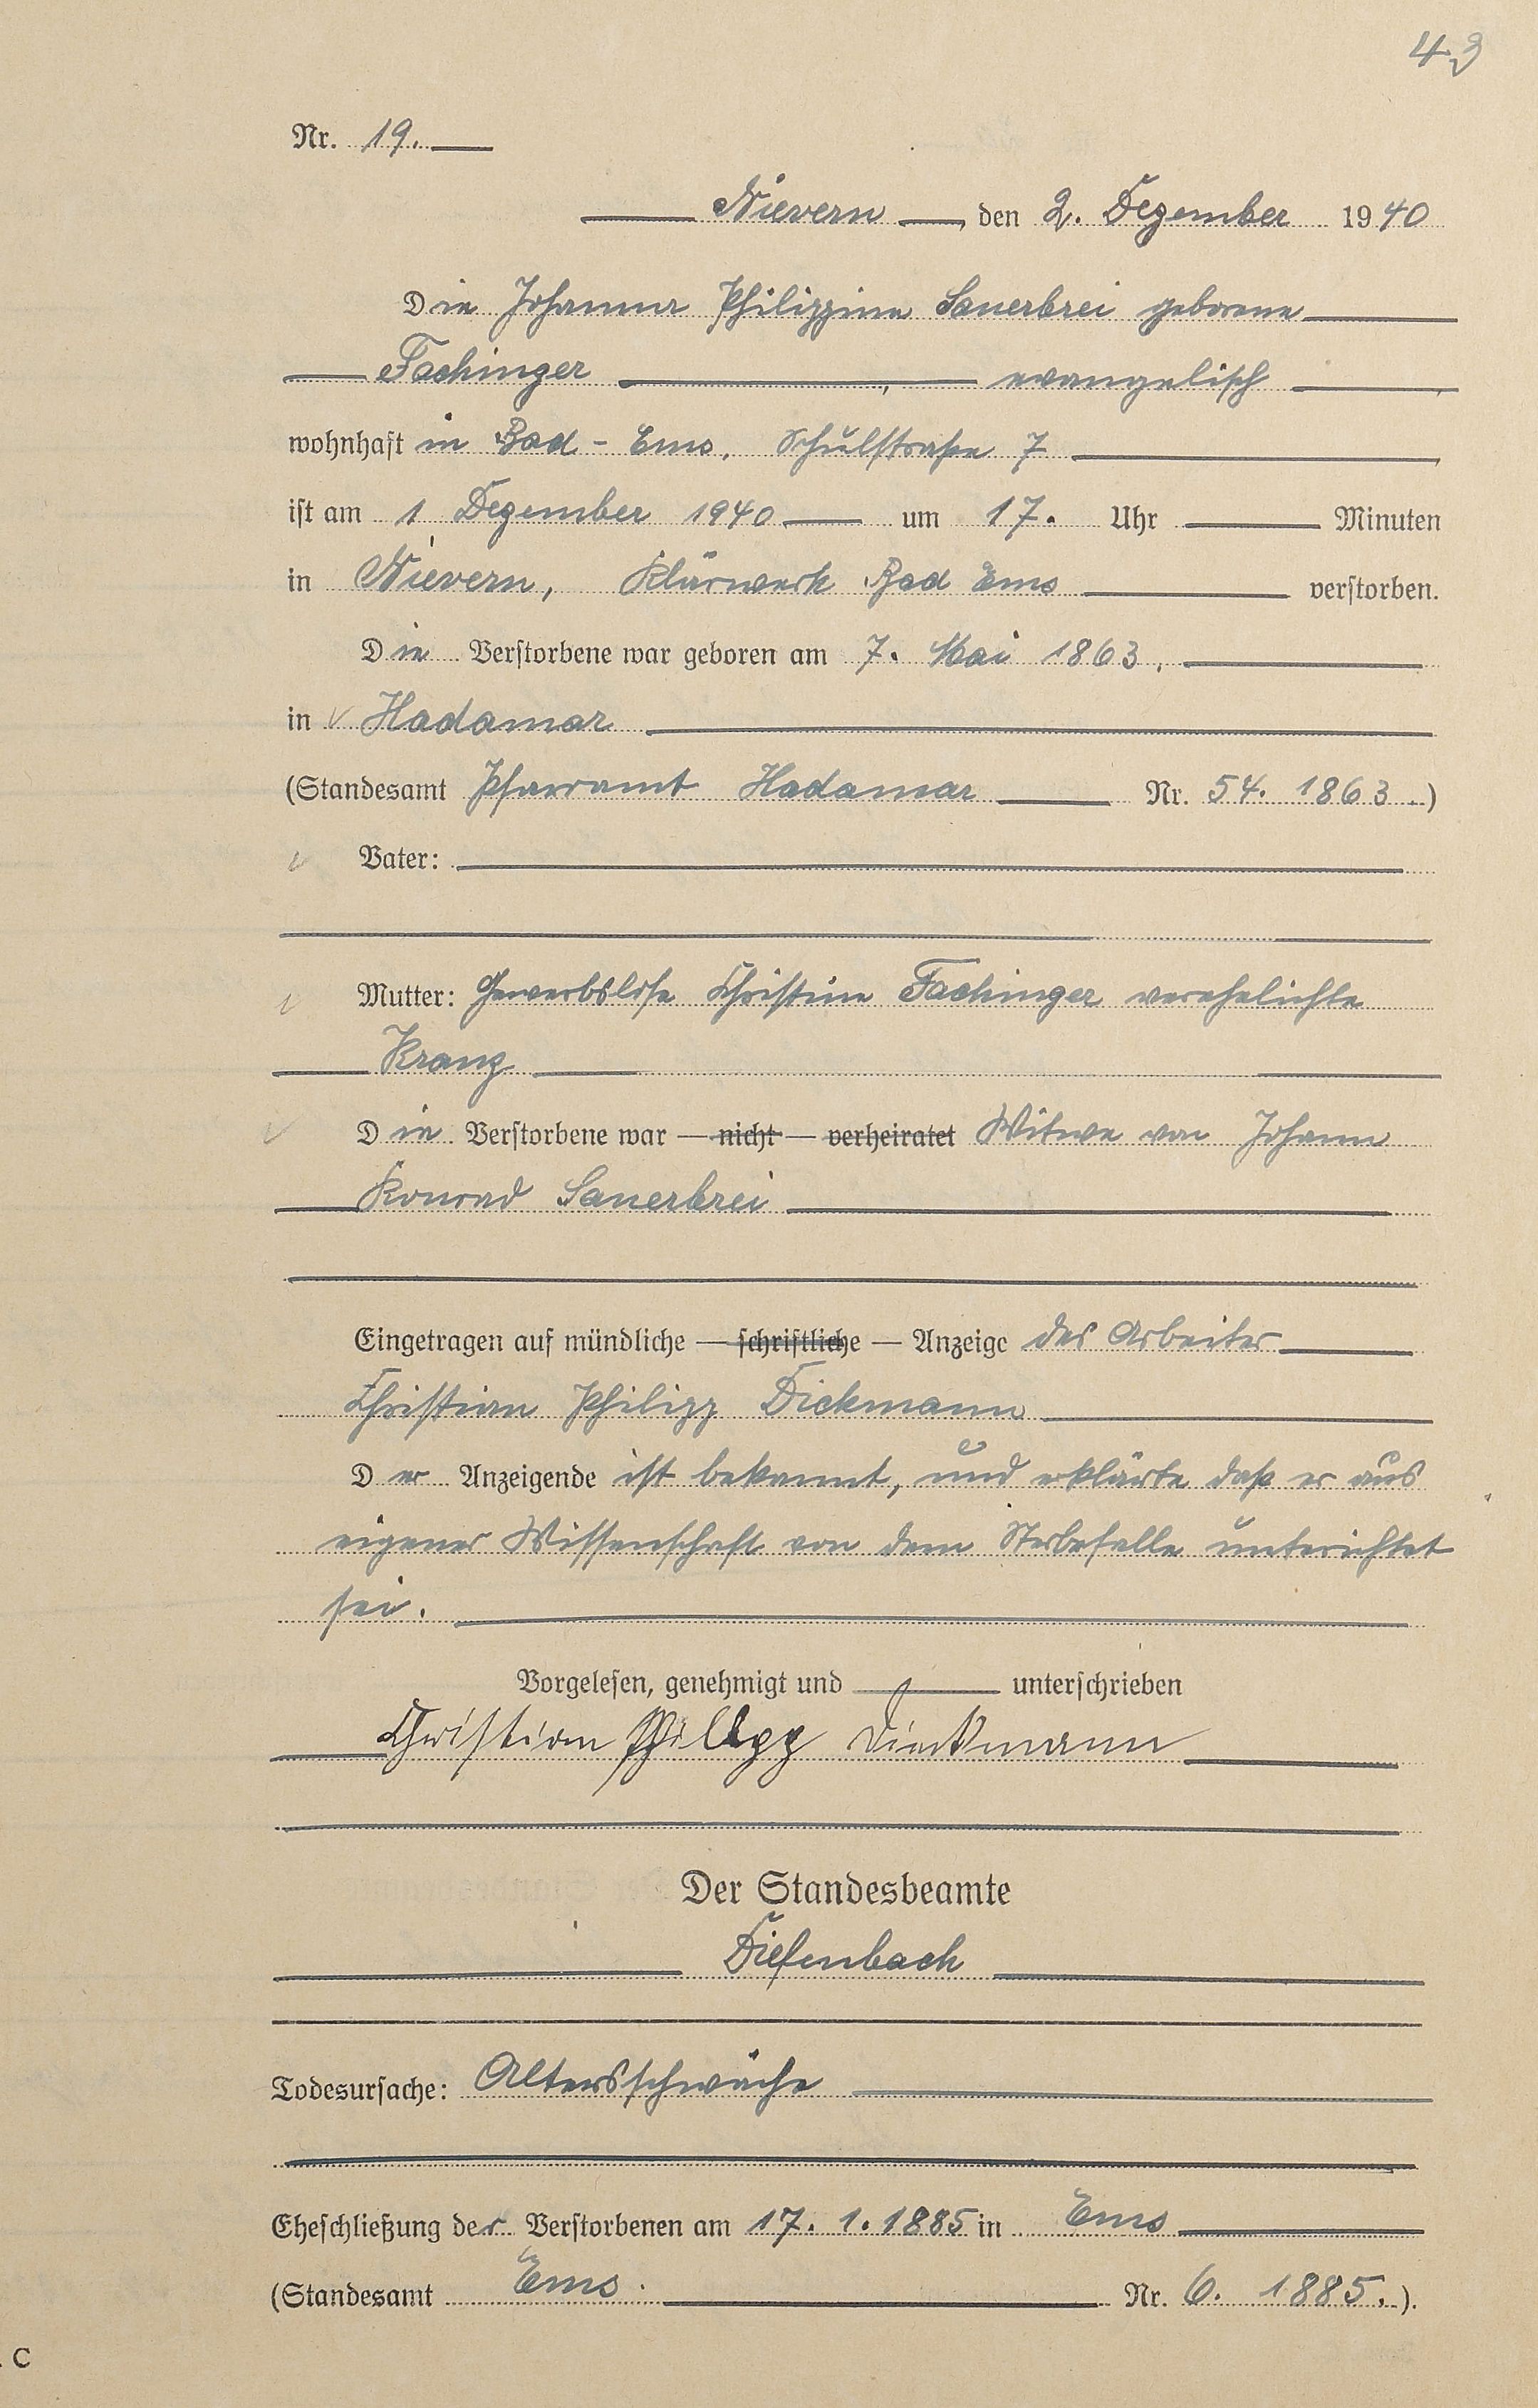 43
Nr. 19.
Nievern, den 2. Dezember 1940
Die Johanna Philippine Sauerbrei geborene
Fachinger, evangelisch,
wohnhaft in Bad-Ems, Schulstraße 7,
ist am 1 Dezember 1940 um 17. Uhr Minuten
in Nievern, Klärwerk Bad Ems verstorben.
Die Verstorbene war geboren am 7. Mai 1863,
in Hadamar
(Standesamt Pfarramt Hadamar Nr. 54. 1863.)
Vater:
Mutter: Gewerbslose Christine Fachinger verehelichte
Kranz
Die Verstorbene war — nicht — verheiratet Witwe von Johann
Konrad Sauerbrei
Eingetragen auf mündliche — schriftliche — Anzeige des Arbeiter
Christian Philipp Dickmann
Der Anzeigende ist bekannt, und erklärte daß er aus
eigener Wissenschaft von dem Sterbefalle unterichtet
sei.
Vorgelesen, genehmigt und unterschrieben
Christian Philipp Dieckmann
Der Standesbeamte
Diefenbach
Todesursache: Altersschwäche
Eheschließung der Verstorbenen am 17. 1. 1885 in Ems
(Standesamt Ems. Nr. 6. 1885.).
. C